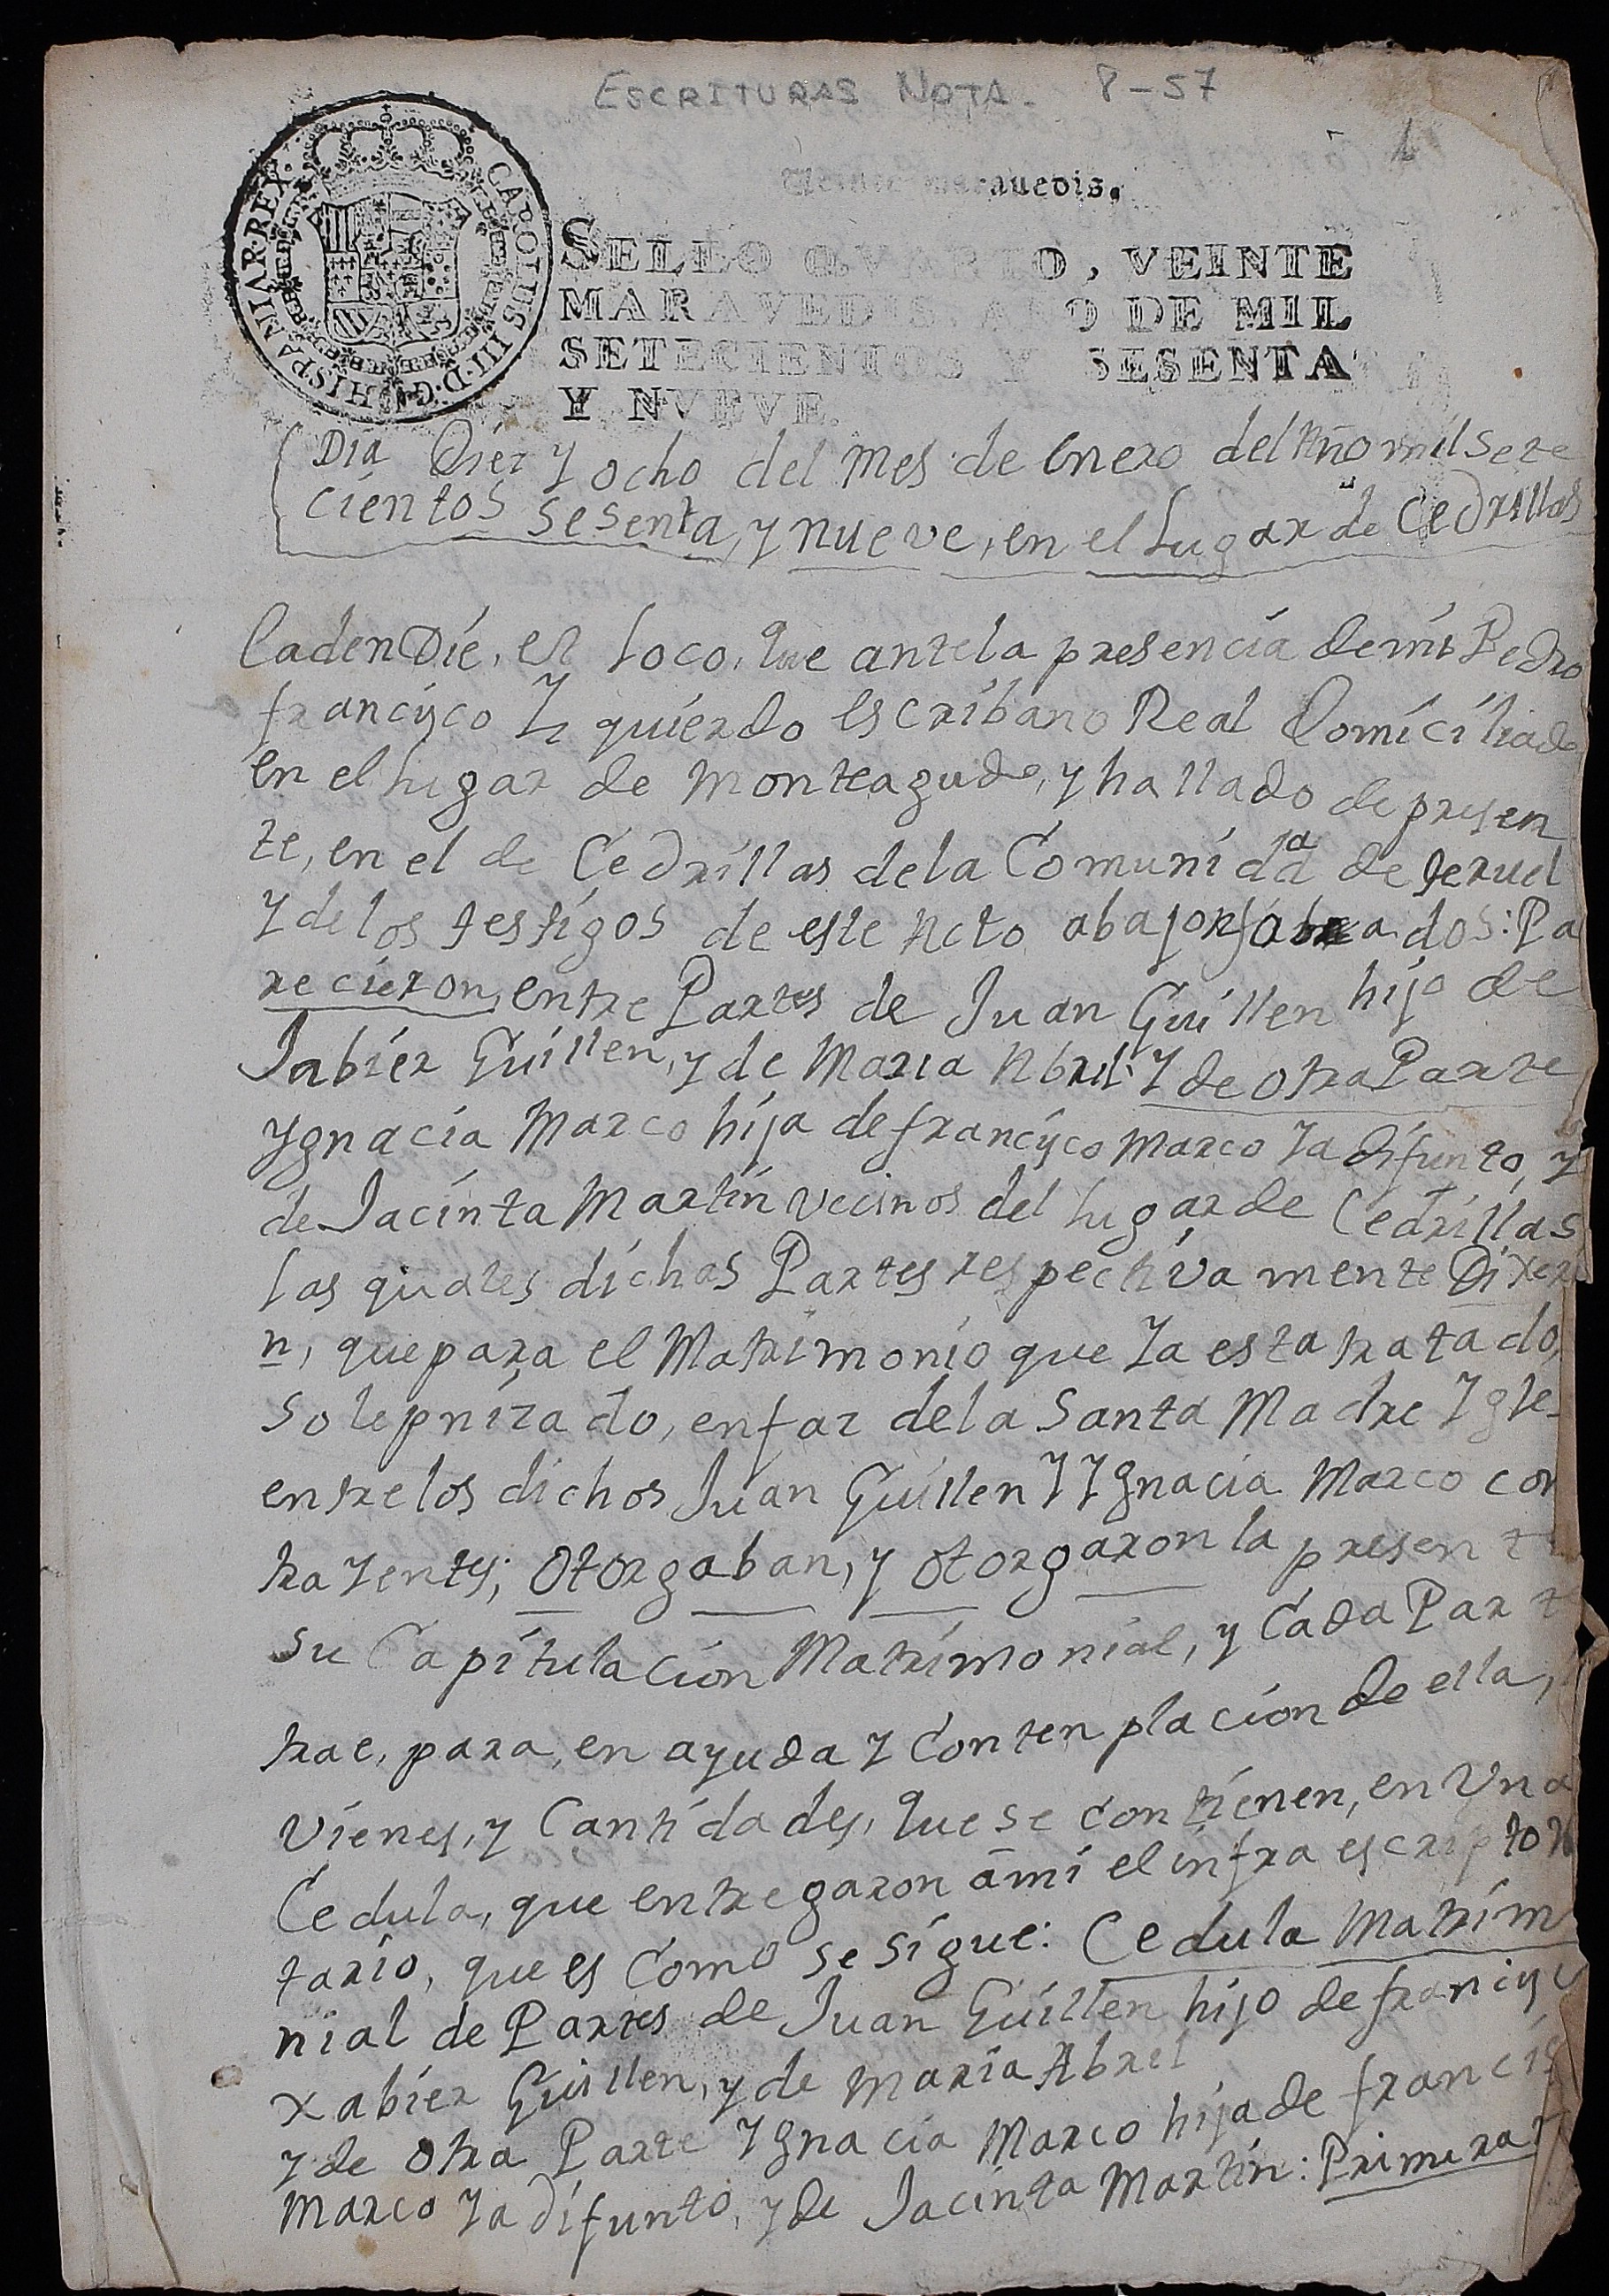 ESCRITURAS NOTA. 8-57
1
Veinte maravedis.
CAROLUS III D. G. HISPANIAR. REX.
SELLO QVARTO, VEINTE
MARAVEDIS, AÑO DE MIL
SETECIENTOS Y SESENTA
Y NVEVE.
Dia Diez y ocho del Mes de Enero del Año mil sete
cientos sesenta, y nueve, en el Lugar de Cedrillas
Eaden Die, et Loco, que ante la presencia de mi Pedro
francisco Yzquierdo Escribano Real Domiciliado
en el lugar de Monteagudo, y hallado de presen
te, en el de Cedrillas de la Comunidad de Teruel
y de los testigos de este Acto abajo dos: Pa
recieron, entre Partes de Juan Guillen hijo de
Jabier Guillen, y de Maria Abril: Y de otra Parte
Ygnacia Marco hija de francisco Marco Ya difunto, y
de Jacinta Martin vecinos del lugar de Cedrillas
las quales dichas Partes respectiva mente Dixero
n, que para el Matrimonio que Ya esta tratado,
Solepnizado, en faz de la Santa Madre Ygle
entre los dichos Juan Guillen Y Ygnacia Marco con
trayentes; Otorgaban, y otorgaron la present
su Capitulacion Matrimonial, y Cada Part
trae, para, en ayuda y Contenplacion de ella,
vienes, y Cantidades, que se contienen, en Una
Cedula, que entregaron ami el infra escripto N
tario, que es Como se sigue: Cedula Matrim
nial de Partes de Juan Guillen hijo de francisc
Xabier Guillen, y de Maria Abril
y de otra Parte Ygnacia Marco hija de francis
Marco Ya difunto, y de Jacinta Martin: Primera